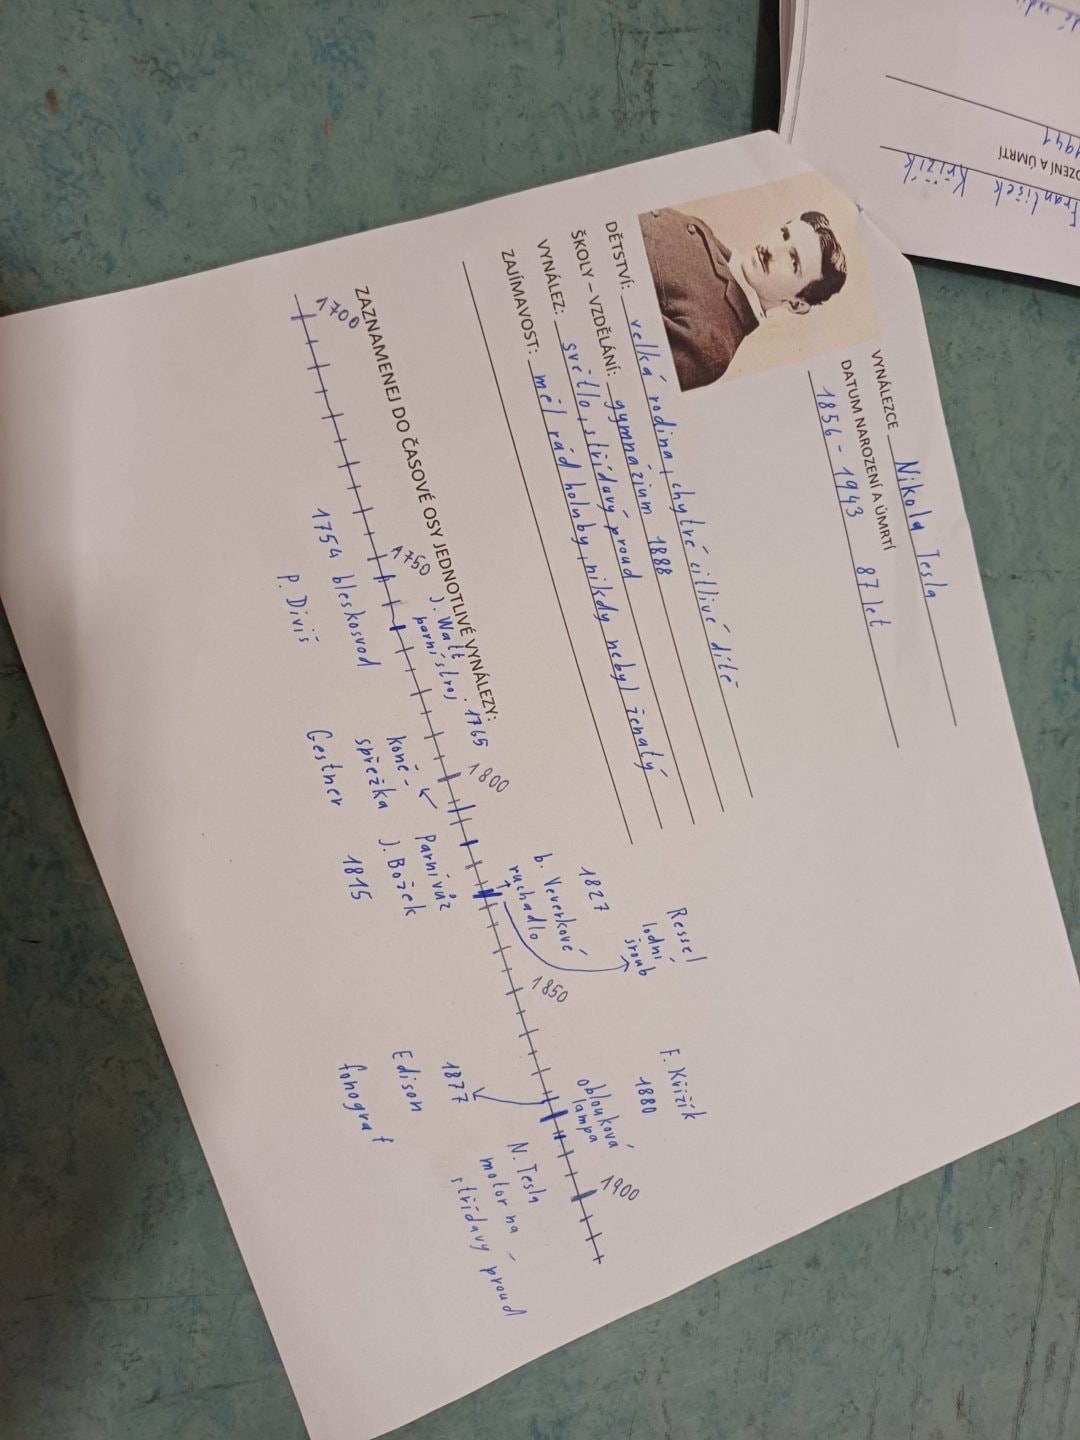 VYNÁLEZCE Nikola Tesla
DATUM NAROZENÍ A ÚMRTÍ
1856 - 1943 87 let
DĚTSTVÍ: velká rodina, chytré citlivé dítě
ŠKOLY – VZDĚLÁNÍ: gymnázium 1888
VYNÁLEZ: světlo, střídavý proud
ZAJÍMAVOST: měl rád holuby, nikdy nebyl ženatý
ZAZNAMENEJ DO ČASOVÉ OSY JEDNOTLIVÉ VYNÁLEZY:
1700
1750
J. Watt
parní stroj 1765
1800
1850
1900
1754 bleskosvod
P. Diviš
koně-
spřežka
Gestner
Parní vůz
J. Božek
1815
1827
b. Veverkové
ruchadlo
Ressel
lodní
šroub
1877
Edison
fonograf
F. Křižík
1880
oblouková
lampa
N. Tesla
motor na
střídavý proud
František Křižík
OZENÍ A ÚMRTÍ
1941